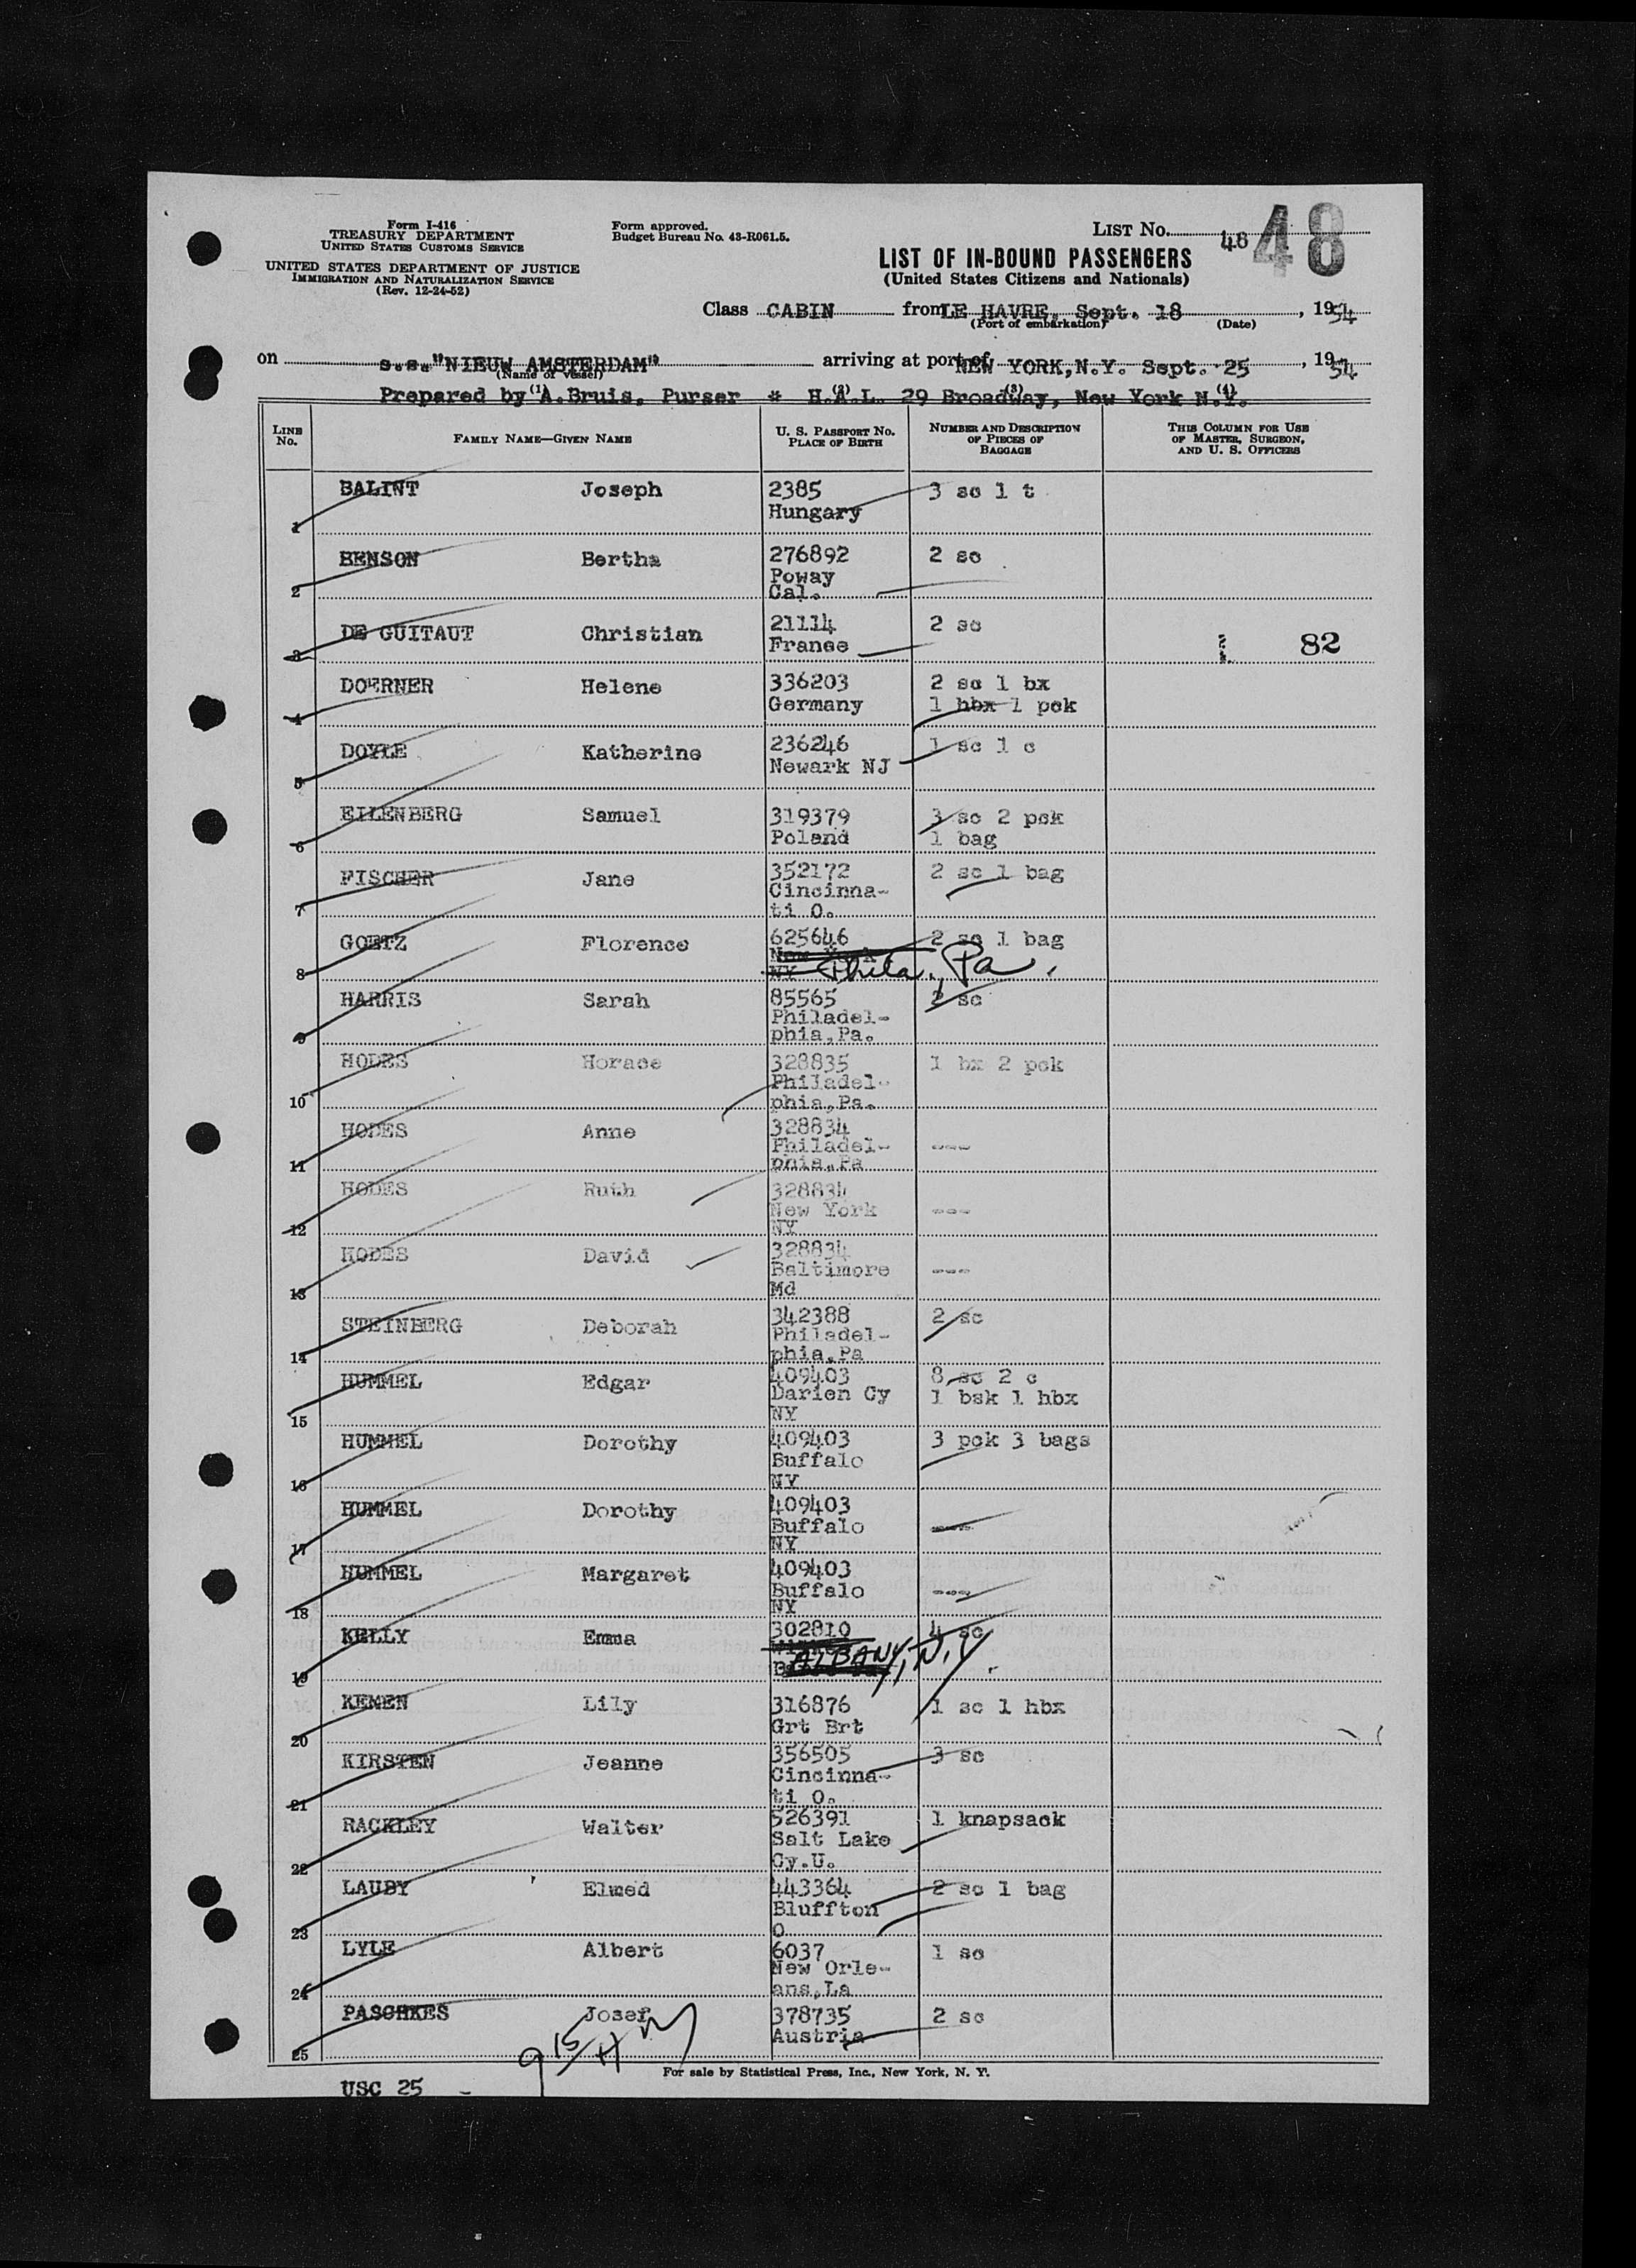 Form I-416
TREASURY DEPARTMENT
UNITED STATES CUSTOMS SERVICE
UNITED STATES DEPARTMENT OF JUSTICE
IMMIGRATION AND NATURALIZATION SERVICE
(Rev. 12-24-52)
Form approved.
Budget Bureau No. 43-R061.5.
LIST No. 48 48
LIST OF IN-BOUND PASSENGERS
(United States Citizens and Nationals)
Class CABIN from LE HAVRE, Sept. 18, 1954
(Port of embarkation) (Date)
on s.s."NIEUW AMSTERDAM" arriving at port of NEW YORK,N.Y. Sept. 25, 1954
(Name of vessel)
Prepared by (1) A.Bruis, Purser * H.A.L. (2) 29 Broadway, (3) New York N.Y. (4)
LINE No. FAMILY NAME—GIVEN NAME U. S. PASSPORT NO. PLACE OF BIRTH NUMBER AND DESCRIPTION OF PIECES OF BAGGAGE THIS COLUMN FOR USE OF MASTER, SURGEON, AND U. S. OFFICERS
1 BALINT Joseph 2385 3 sc 1 t
Hungary
2 BENSON Bertha 276892 2 sc
Poway
Cal.
3 DE GUITAUT Christian 21114 2 sc 82
France
4 DOERNER Helene 336203 2 sc 1 bx
Germany 1 hbx 1 pck
5 DOYLE Katherine 236246 1 sc 1 c
Newark NJ
6 EILENBERG Samuel 319379 3 sc 2 pck
Poland 1 bag
7 FISCHER Jane 352172 2 sc 1 bag
Cincinna-
ti O.
8 GOETZ Florence 625646 2 sc 1 bag
New York
NY Phila, Pa.
9 HARRIS Sarah 85565 2 sc
Philadel-
phia,Pa.
10 HODES Horace 328835 1 bx 2 pck
Philadel-
phia,Pa.
11 HODES Anne 328834 ---
Philadel-
phia,Pa
12 HODES Ruth 328834 ---
New York
NY
13 HODES David 328834 ---
Baltimore
Md
14 STEINBERG Deborah 342388 2 sc
Philadel-
phia,Pa
15 HUMMEL Edgar 409403 8 sc 2 c
Darien Cy 1 bsk 1 hbx
NY
16 HUMMEL Dorothy 409403 3 pck 3 bags
Buffalo
NY
17 HUMMEL Dorothy 409403 ---
Buffalo
NY
18 HUMMEL Margaret 409403 ---
Buffalo
NY
19 KELLY Emma 302810 4 sc
ALBANY, N.Y
20 KEMEN Lily 316876 1 sc 1 hbx
Grt Brt
21 KIRSTEN Jeanne 356505 3 sc
Cincinna-
ti O.
22 RACKLEY Walter 526391 1 knapsack
Salt Lake
Cy.U.
23 LAUBY Elmed 443364 2 sc 1 bag
Bluffton
O
24 LYLE Albert 6037 1 sc
New Orle-
ans,La
25 PASCHKES Josef 378735 2 sc
Austria
For sale by Statistical Press, Inc., New York, N. Y.
USC 25 -